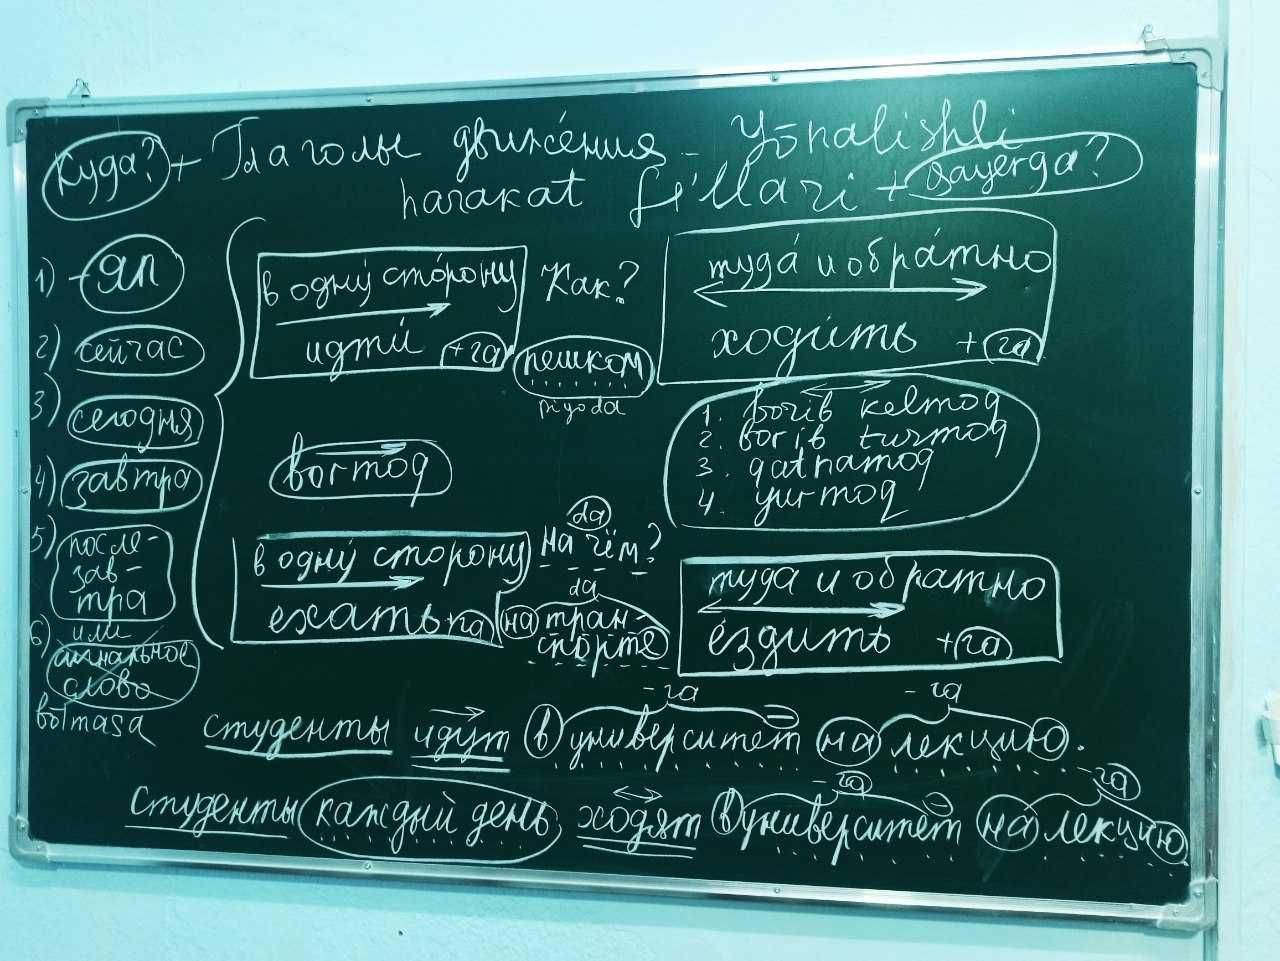 Куда? + Глаголы движéния - Yōnalishli
harakat fe'llari + qayerga?
1) - яп
2) сейчас
3) сегодня
4) завтра
5) после-
зав-
тра
или
6) сигнальное
слово
bōlmasa
в однý стóрону
идти́ +га
Как?
пешком
piyoda
тудá и обрáтно
ходи́ть + га
bormoq
1. borib kelmoq
2. borib turmoq
3. qatnamoq
4. yurmoq
в однý сторону
ехать +га
da
на чём?
da
на тран-
спорте
туда и обратно
éздить + га
- га - га
студенты идут в университет на лекцию.
- га - га
студенты каждый день ходят в университет на лекцию